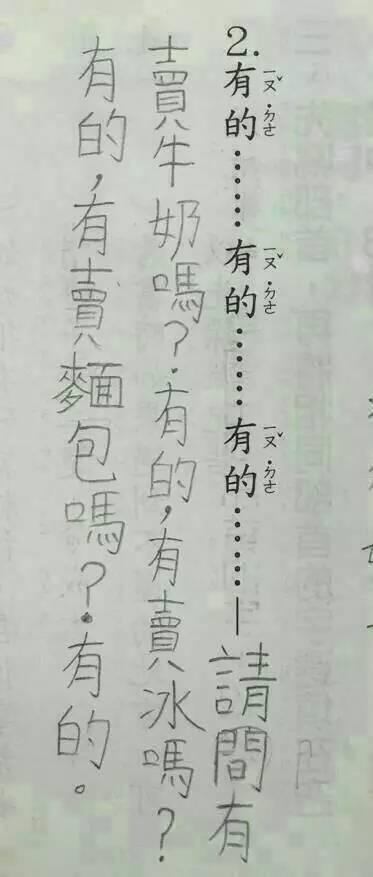 2.有的……有的……有的……—請問有
賣牛奶嗎？有的，有賣冰嗎？
有的，有賣麵包嗎？有的。